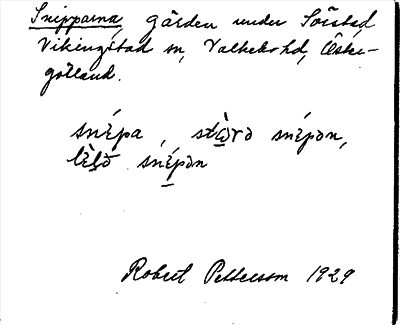 Snipparna, gården under Sörstad
Vikingstad sn, Valkebo hd, Öster-
götland.
snépa, stò̤rə snépən,
lèḷə snépən
Robert Pettersson 1929